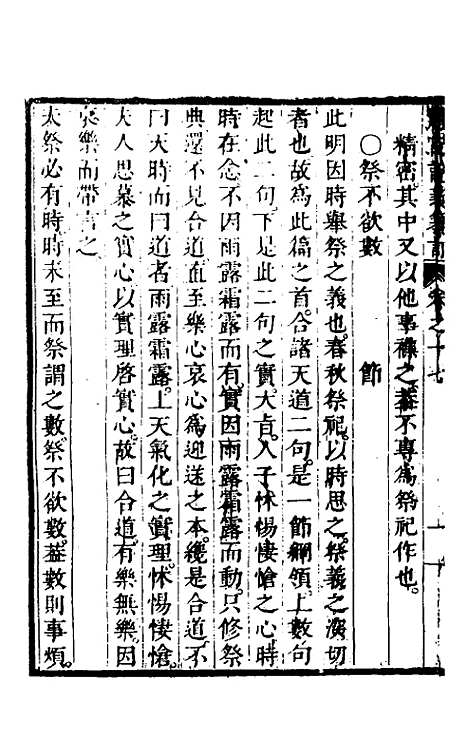 精密其中又以他事襍之葢不專為祭祀作也
〇祭不欲數　節
此明因時舉祭之義也春秋祭祀以時思之祭義之深切
者也故為此篇之首合諸天道二句是一節綱領上數句
起此二句下是此二句之實大㫖人子怵惕悽愴之心時
時在念不因雨露霜露而有實因雨露霜露而動只修祭
典還不見合道直至樂心哀心為迎送之本纔是合道不
曰天時而曰道者雨露霜露上天氣化之實理怵惕悽愴
夫人思慕之實心以實理啓實心故曰合道有樂無樂因
哀樂而帶言之
夫祭必有時時未至而祭謂之數祭不欲數葢數則事煩
卷之十七